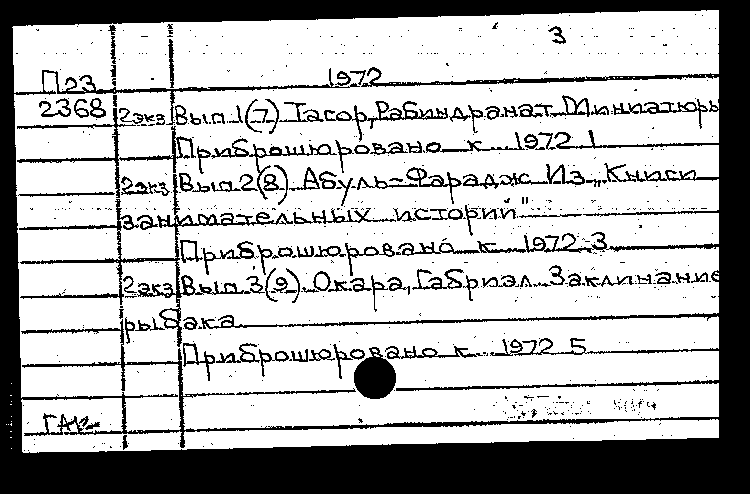 3
П23 1972
2368 2экз Вып 1(7) Тагор, Рабиндранат Миниатюры
Приброшюровано к 1972 1
2экз Вып 2(8) Абуль-Фарадж Из „Книги
занимательных историй"
Приброшюровано к 1972 3
2экз Вып 3(9) Окара, Габриэл Заклинание
рыбака
Приброшюровано к 1972 5